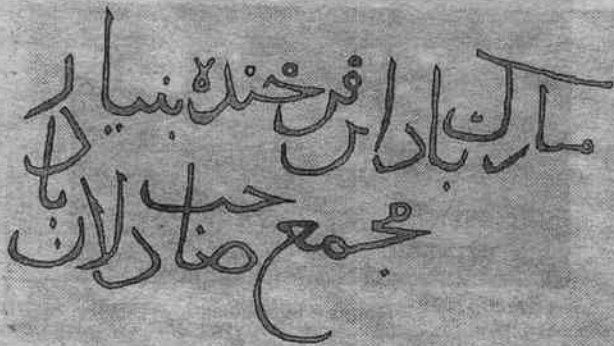 مبارک باد این فرخنده بنیاد
مجمع صاحب دلان باد